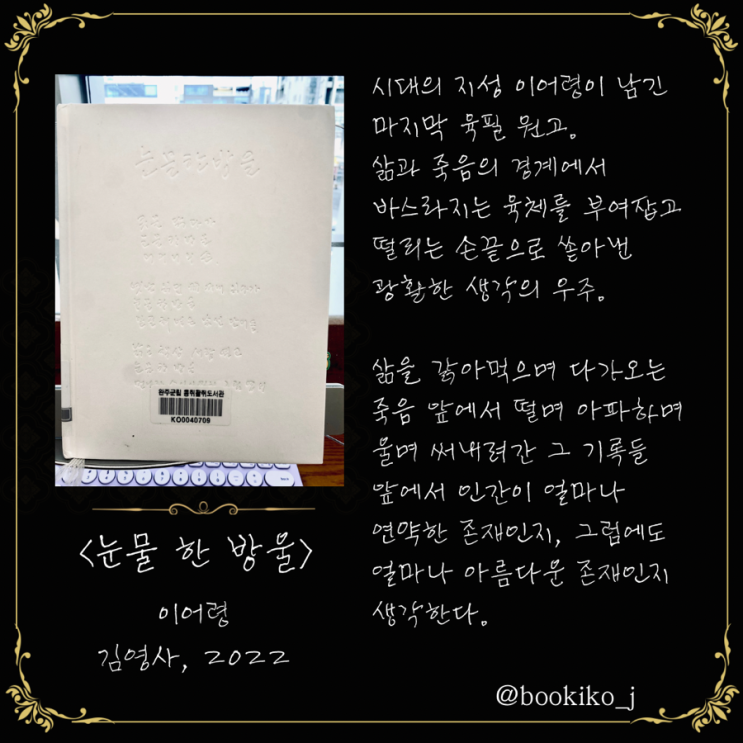 눈물 한 방울
완주군립 콩쥐팥쥐도서관
KO0040709
<눈물 한 방울>
이어령
김영사, 2022
시대의 지성 이어령이 남긴
마지막 육필 원고.
삶과 죽음의 경계에서
바스라지는 육체를 부여잡고
떨리는 손끝으로 쏟아낸
광활한 생각의 우주.
삶을 갉아먹으며 다가오는
죽음 앞에서 떨며 아파하며
울며 써내려간 그 기록들
앞에서 인간이 얼마나
연약한 존재인지, 그럼에도
얼마나 아름다운 존재인지
생각한다.
@bookiko_j